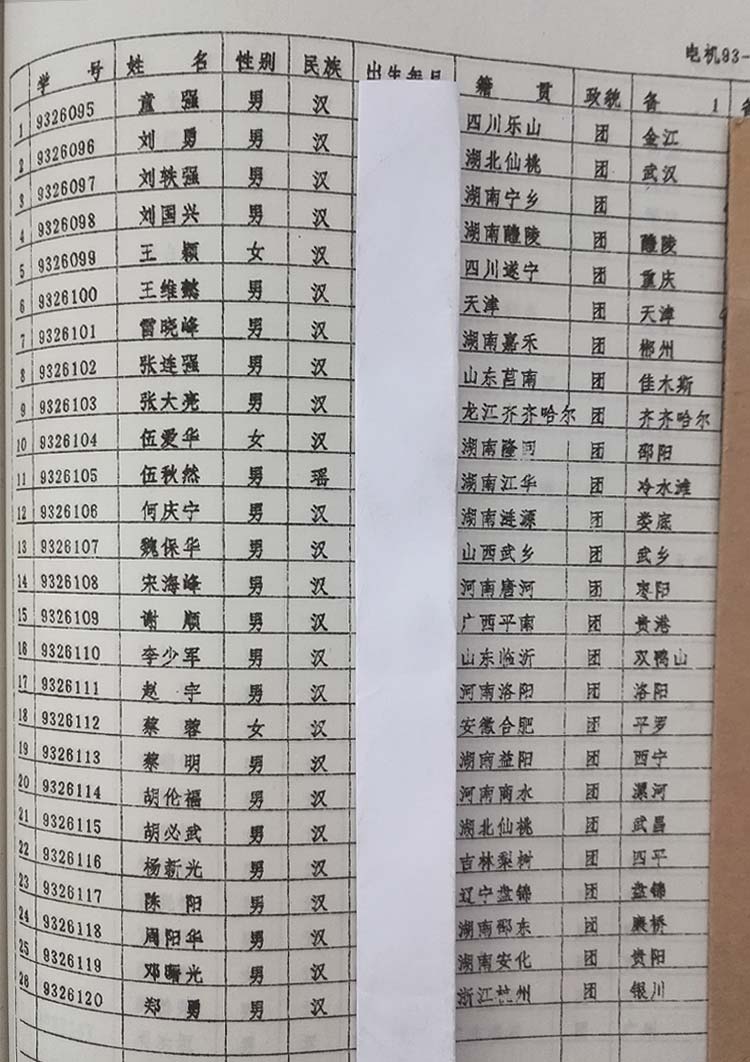 电机93-
学 号 姓 名 性别 民族 出生年月 籍 贯 政貌 备 1 备
1 9326095 童 强 男 汉 四川乐山 团 金江
2 9326096 刘 勇 男 汉 湖北仙桃 团 武汉
3 9326097 刘轶强 男 汉 湖南宁乡 团
4 9326098 刘国兴 男 汉 湖南醴陵 团 醴陵
5 9326099 王 颖 女 汉 四川遂宁 团 重庆
6 9326100 王维懿 男 汉 天津 团 天津
7 9326101 雷晓峰 男 汉 湖南嘉禾 团 郴州
8 9326102 张连强 男 汉 山东莒南 团 佳木斯
9 9326103 张大亮 男 汉 龙江齐齐哈尔 团 齐齐哈尔
10 9326104 伍爱华 女 汉 湖南隆回 团 邵阳
11 9326105 伍秋然 男 瑶 湖南江华 团 冷水滩
12 9326106 何庆宁 男 汉 湖南涟源 团 娄底
13 9326107 魏保华 男 汉 山西武乡 团 武乡
14 9326108 宋海峰 男 汉 河南唐河 团 枣阳
15 9326109 谢 顺 男 汉 广西平南 团 贵港
16 9326110 李少军 男 汉 山东临沂 团 双鸭山
17 9326111 赵 宇 男 汉 河南洛阳 团 洛阳
18 9326112 蔡 蓉 女 汉 安徽合肥 团 平罗
19 9326113 蔡 明 男 汉 湖南益阳 团 西宁
20 9326114 胡伦福 男 汉 河南商水 团 漯河
21 9326115 胡必武 男 汉 湖北仙桃 团 武昌
22 9326116 杨新光 男 汉 吉林梨树 团 四平
23 9326117 陈 阳 男 汉 辽宁盘锦 团 盘锦
24 9326118 周阳华 男 汉 湖南邵东 团 廉桥
25 9326119 邓曙光 男 汉 湖南安化 团 贵阳
26 9326120 郑 勇 男 汉 浙江杭州 团 银川